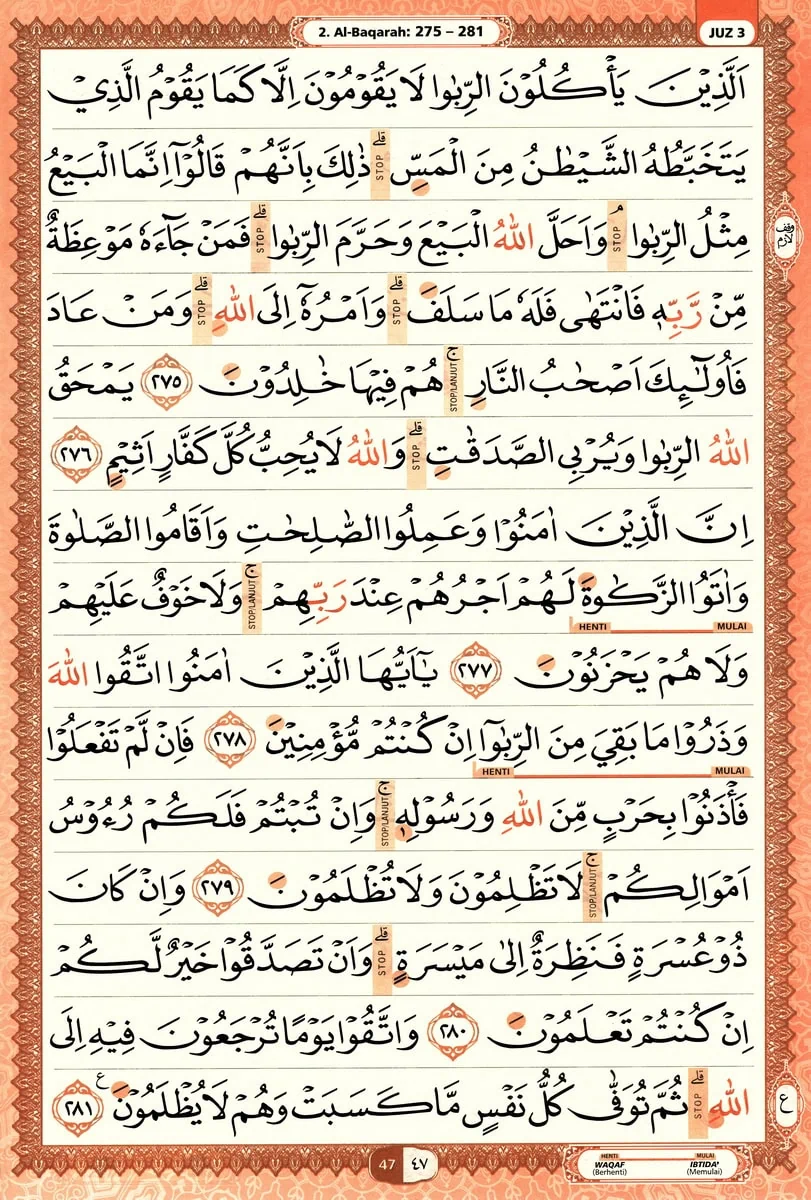 2. Al-Baqarah: 275 – 281
JUZ 3
اَلَّذِيْنَ يَأْكُلُوْنَ الرِّبٰوا لَا يَقُوْمُوْنَ اِلَّا كَمَا يَقُوْمُ الَّذِيْ
يَتَخَبَّطُهُ الشَّيْطٰنُ مِنَ الْمَسِّ ۗ STOP ذٰلِكَ بِاَنَّهُمْ قَالُوْٓا اِنَّمَا الْبَيْعُ
مِثْلُ الرِّبٰوا ۘ STOP وَاَحَلَّ اللّٰهُ الْبَيْعَ وَحَرَّمَ الرِّبٰوا ۗ STOP فَمَنْ جَاۤءَهٗ مَوْعِظَةٌ
وقف لازم
مِّنْ رَّبِّهٖ فَانْتَهٰى فَلَهٗ مَا سَلَفَ ۗ STOP وَاَمْرُهٗٓ اِلَى اللّٰهِ ۗ STOP وَمَنْ عَادَ
فَاُولٰۤىِٕكَ اَصْحٰبُ النَّارِ ۚ STOP/LANJUT هُمْ فِيْهَا خٰلِدُوْنَ ٢٧٥ يَمْحَقُ
اللّٰهُ الرِّبٰوا وَيُرْبِى الصَّدَقٰتِ ۗ STOP وَاللّٰهُ لَا يُحِبُّ كُلَّ كَفَّارٍ اَثِيْمٍ ٢٧٦
اِنَّ الَّذِيْنَ اٰمَنُوْا وَعَمِلُوا الصّٰلِحٰتِ وَاَقَامُوا الصَّلٰوةَ
وَاٰتَوُا الزَّكٰوةَ لَهُمْ اَجْرُهُمْ عِنْدَ رَبِّهِمْ ۚ STOP/LANJUT وَلَا خَوْفٌ عَلَيْهِمْ
HENTI MULAI
وَلَا هُمْ يَحْزَنُوْنَ ٢٧٧ يٰٓاَيُّهَا الَّذِيْنَ اٰمَنُوا اتَّقُوا اللّٰهَ
وَذَرُوْا مَا بَقِيَ مِنَ الرِّبٰوٓا اِنْ كُنْتُمْ مُّؤْمِنِيْنَ ٢٧٨ فَاِنْ لَّمْ تَفْعَلُوْا
HENTI MULAI
فَأْذَنُوْا بِحَرْبٍ مِّنَ اللّٰهِ وَرَسُوْلِهٖ ۚ STOP/LANJUT وَاِنْ تُبْتُمْ فَلَكُمْ رُءُوْسُ
اَمْوَالِكُمْ ۚ STOP/LANJUT لَا تَظْلِمُوْنَ وَلَا تُظْلَمُوْنَ ٢٧٩ وَاِنْ كَانَ
ذُوْ عُسْرَةٍ فَنَظِرَةٌ اِلٰى مَيْسَرَةٍ ۗ STOP وَاَنْ تَصَدَّقُوْا خَيْرٌ لَّكُمْ
اِنْ كُنْتُمْ تَعْلَمُوْنَ ٢٨٠ وَاتَّقُوْا يَوْمًا تُرْجَعُوْنَ فِيْهِ اِلَى
اللّٰهِ ۗ STOP ثُمَّ تُوَفّٰى كُلُّ نَفْسٍ مَّا كَسَبَتْ وَهُمْ لَا يُظْلَمُوْنَ ع ٢٨١
ع
47 ٤٧
HENTI MULAI
WAQAF (Berhenti) IBTIDA' (Memulai)